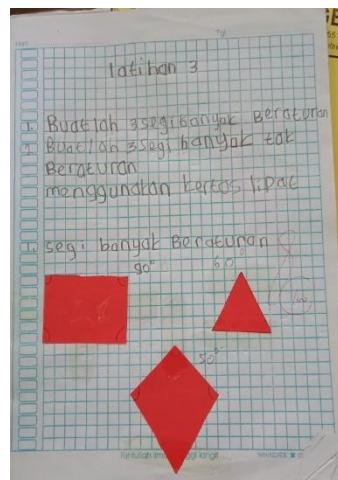 latihan 3
1. Buatlah 3 segi banyak Beraturan
2. Buatlah 3 segi banyak tak
Beraturan
menggunakan kertas lipat
1. segi banyak Beraturan
90°
60°
50°